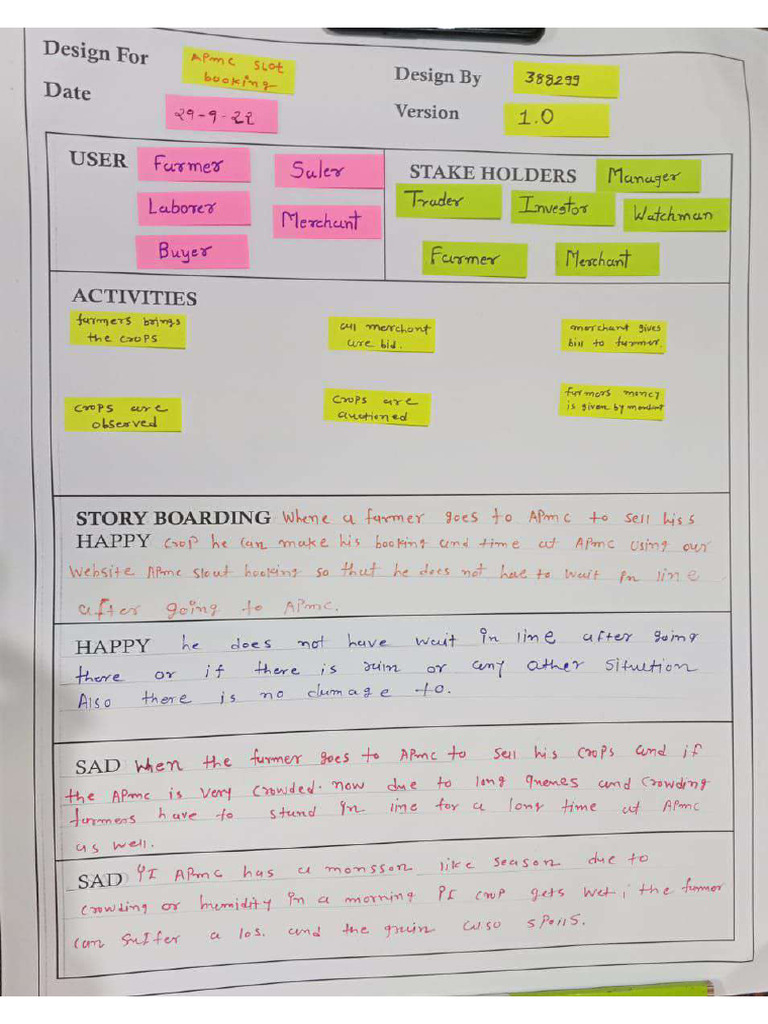 Design For APMC SLOT
booking
Design By 388299
Date 29-9-22
Version 1.0
USER Farmer Saler
Laborer Merchant
Buyer
STAKE HOLDERS Manager
Trader Investor Watchman
Farmer Merchant
ACTIVITIES
farmers brings
the crops
all merchant
are bid.
merchant gives
bill to farmer.
crops are
observed
crops are
auctioned
farmers money
is given by merchant
STORY BOARDING Whene a farmer goes to APMC to sell hiss
HAPPY crop he can make his booking and time at APMC using our
website APMC slout booking so that he does not have to wait in line
after going to APMC.
HAPPY he does not have wait in line after going
there or if there is rain or any other situation
Also there is no damage to.
SAD When the farmer goes to APMC to sell his crops and if
the APMC is very crowded. now due to long queues and crowding
farmers have to stand in line for a long time at APMC
as well.
SAD APMC has a monsson like season due to
crowding or humidity in a morning crop gets wet, the farmer
can suffer a los. and the grain also spoils.